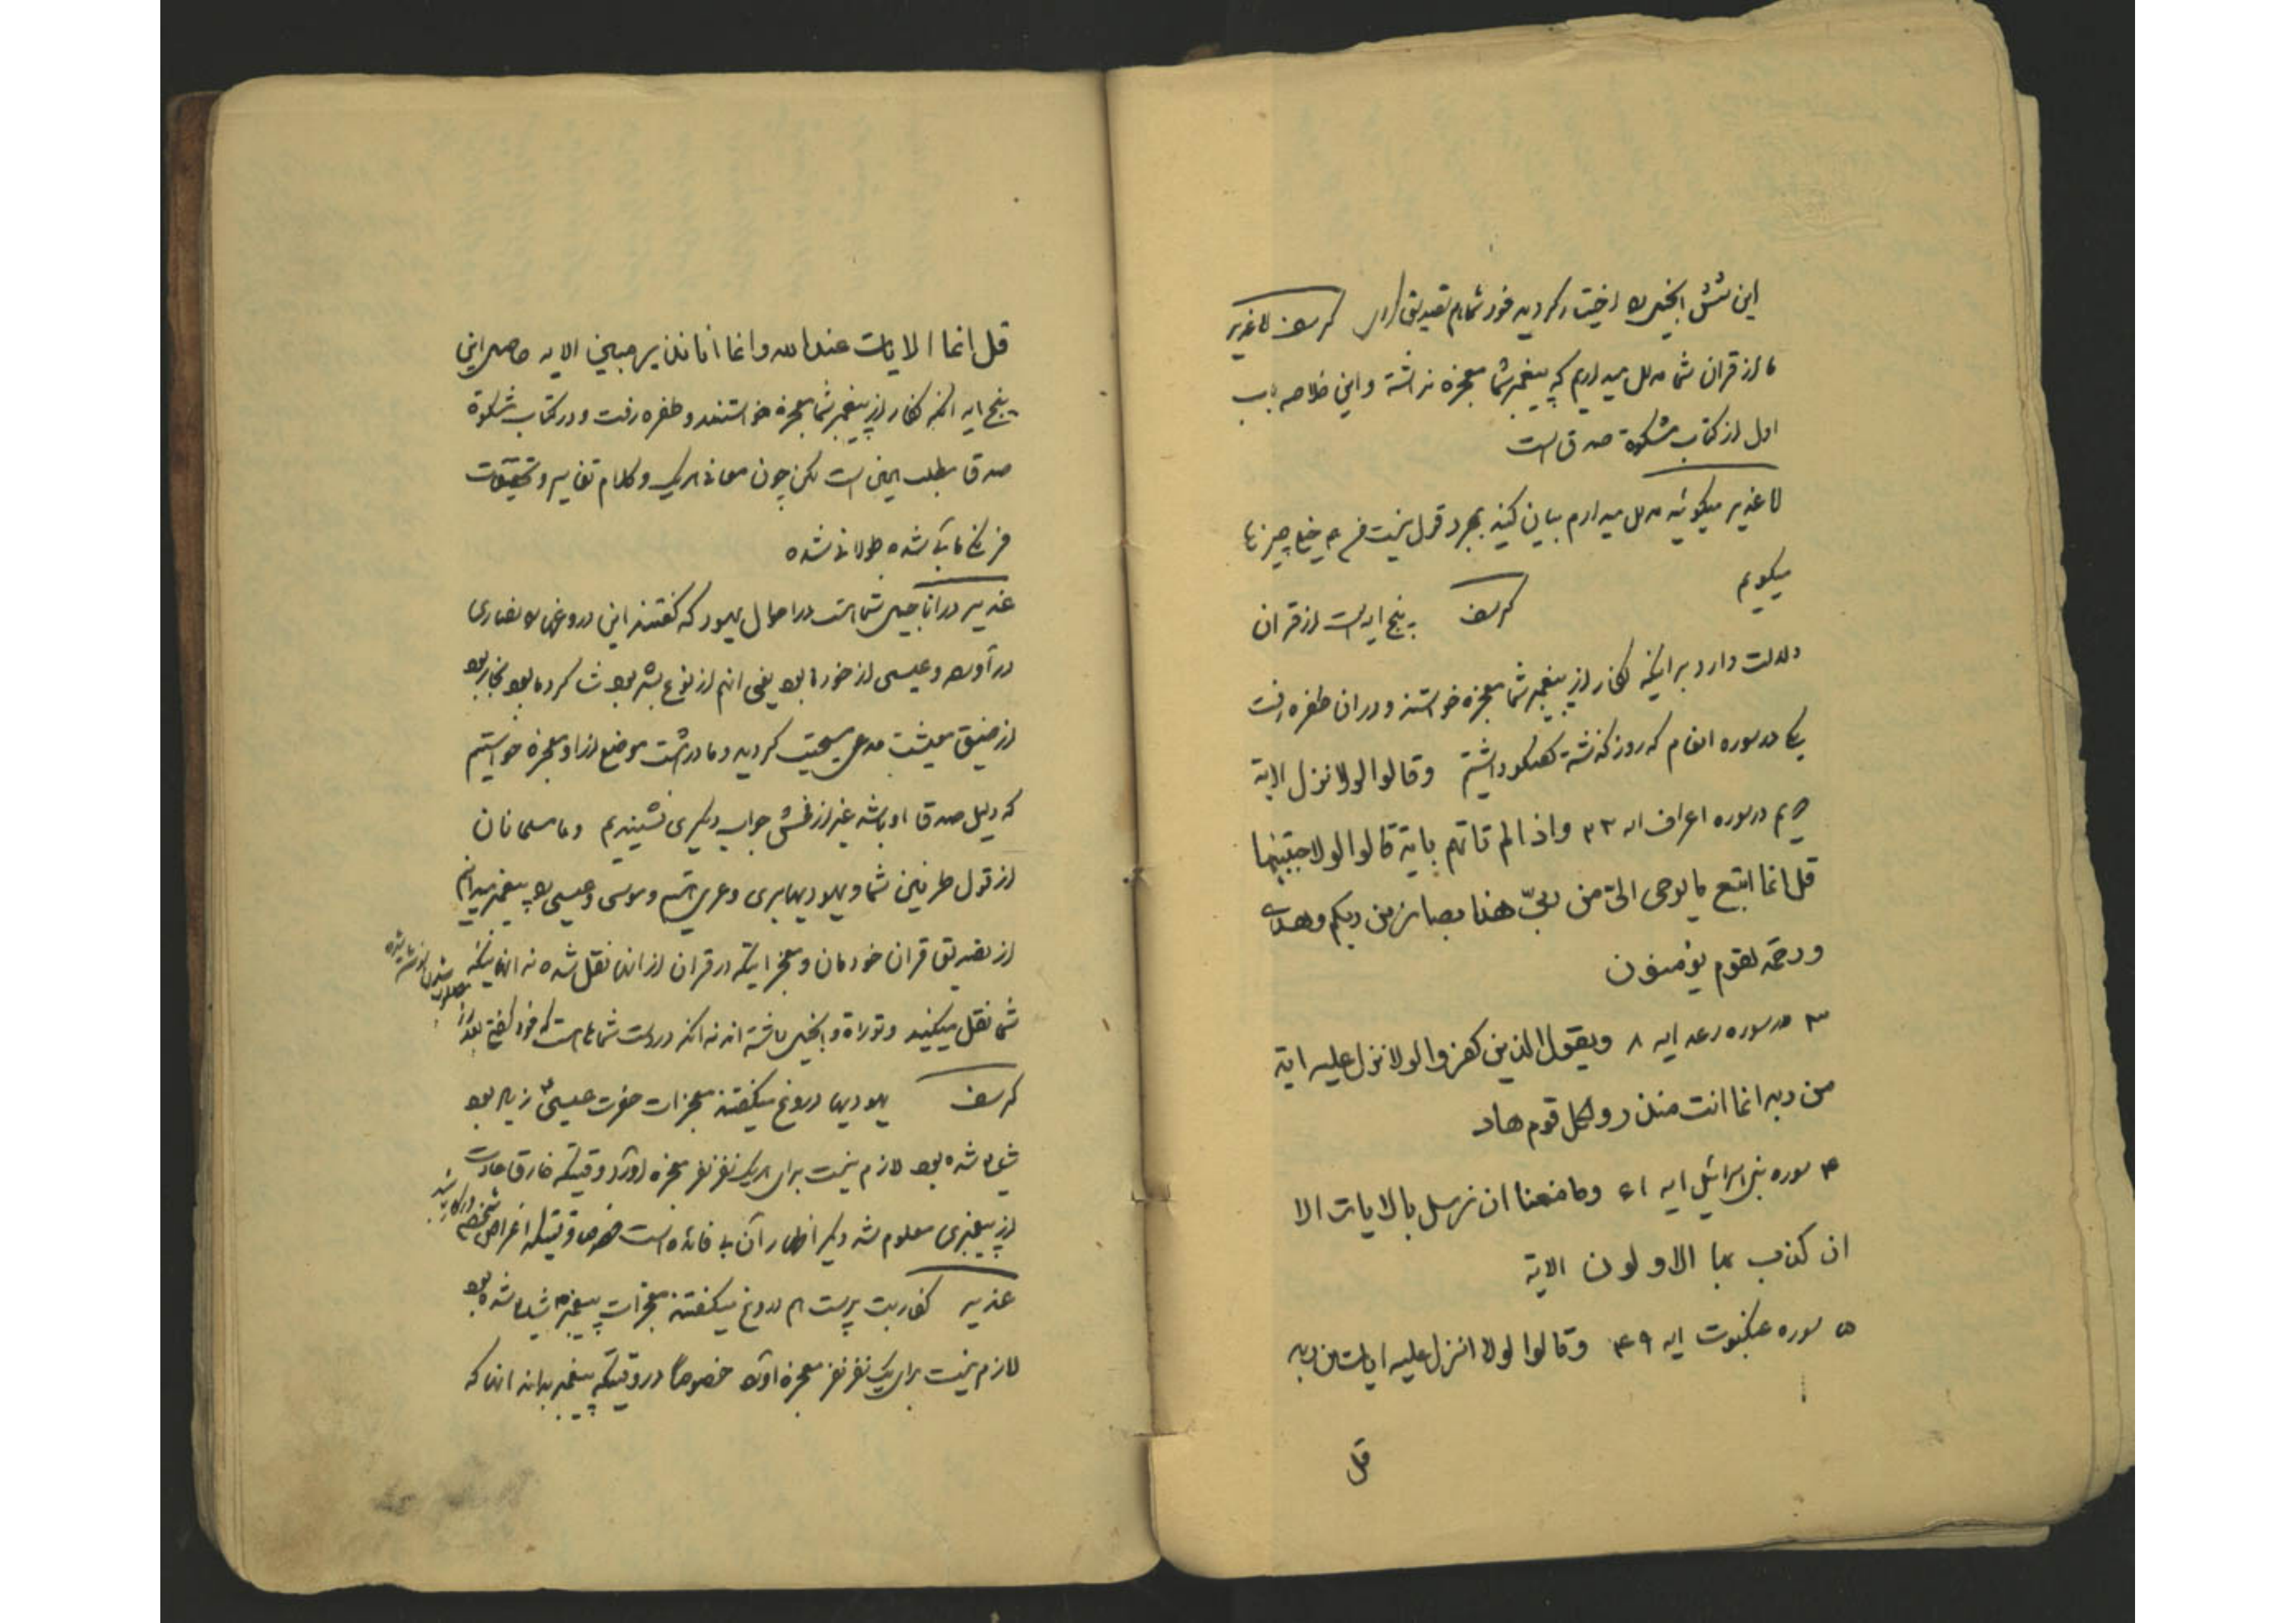 این شش انجیل را اختیار کردید خود شما هم تصدیق دارید کرسف لا غدیر
ما از قران شما مدلل میداریم که پیغمبر شما معجزه نداشته و این خلاصه باب
اول از کتاب مشکوة صدق است
لا غدیر میگوئید مدلل میدارم بیان کنید بمجرد قول نیست هم خیلی چیزها
میگویم
کرسف پنج ایه است از قران
دلالت دارد بر اینکه کفار از پیغمبر شما معجزه خواستند و در ان طفره رفت
یکی در سوره انعام که روز گذشته گفتگو داشتیم وقالوا لولا نزل الایة
دویم در سوره اعراف ایه ۲۳ واذا لم تاتهم بایة قالوا لولا اجتبیتها
قل انما اتبع ما یوحی الیّ من ربیّ هذا بصائر من ربکم وهدی
ورحمة لقوم یؤمنون
۳ در سوره رعد ایه ۸ ویقول الذین کفروا لولا نزل علیه ایة
من ربه انما انت منذر ولکل قوم هاد
۴ سوره بنی اسرائیل ایه ۶۱ وما منعنا ان نرسل بالایات الا
ان کذب بها الاولون الایة
۵ سوره عنکبوت ایه ۴۹ وقالوا لولا انزل علیه ایات من ربه
قل
قل انما الایات عند الله وانما انا نذیر مبین الایه حاصل این
پنج ایه انکه کفار از پیغمبر شما معجزه خواستند و طفره رفت و در کتاب مشکوة
صدق مطلب همین است لکن چون معانی و کلام تفاسیر و تحقیقات
شده طولانی شده
غدیر در اناجیل شما است در احوال یهود که گفتند این دروغها را نصاری
در آورده و عیسی از خود ما بود یعنی انهم از نوع بشر بود شاکرد ما بود نجار بود
از ضیق معیشت مدعی مسیحیت گردید و ما در هشت موضع از او معجزه خواستیم
که دلیل صدق او باشد غیر از فحش جواب دیگری نشنیدیم و ما مسلمانان
از قول طرفین شما و یهودیها بری و عری هستیم و موسی و عیسی را پیغمبر میدانیم
از تصدیق قران خودمان و معجزاتیکه در قران از انها نقل شده نه انهائیکه
شما نقل میکنید و توراة و انجیل داشته اند نه انکه در دست شماها است که خود گفتی بعد از
مصلوب شدن نوشته شده
کرسف یهودیها دروغ میگفتند معجزات حضرت عیسی ع زیاد بود
شایع شده بود لازم نیست برای هر یک نفر نفر معجزه اورد وقتیکه خارق عادت
از پیغمبری معلوم شد دیگر اظهار آن بی فائده است خصوصا وقتیکه اغراض شخصیه در کار باشد
غدیر کفار بت پرست هم دروغ میگفتند معجزات پیغمبر ص شایع شده بود
لازم نیست برای یک نفر نفر معجزه آورد خصوصاً در وقتیکه پیغمبر بداند انها که